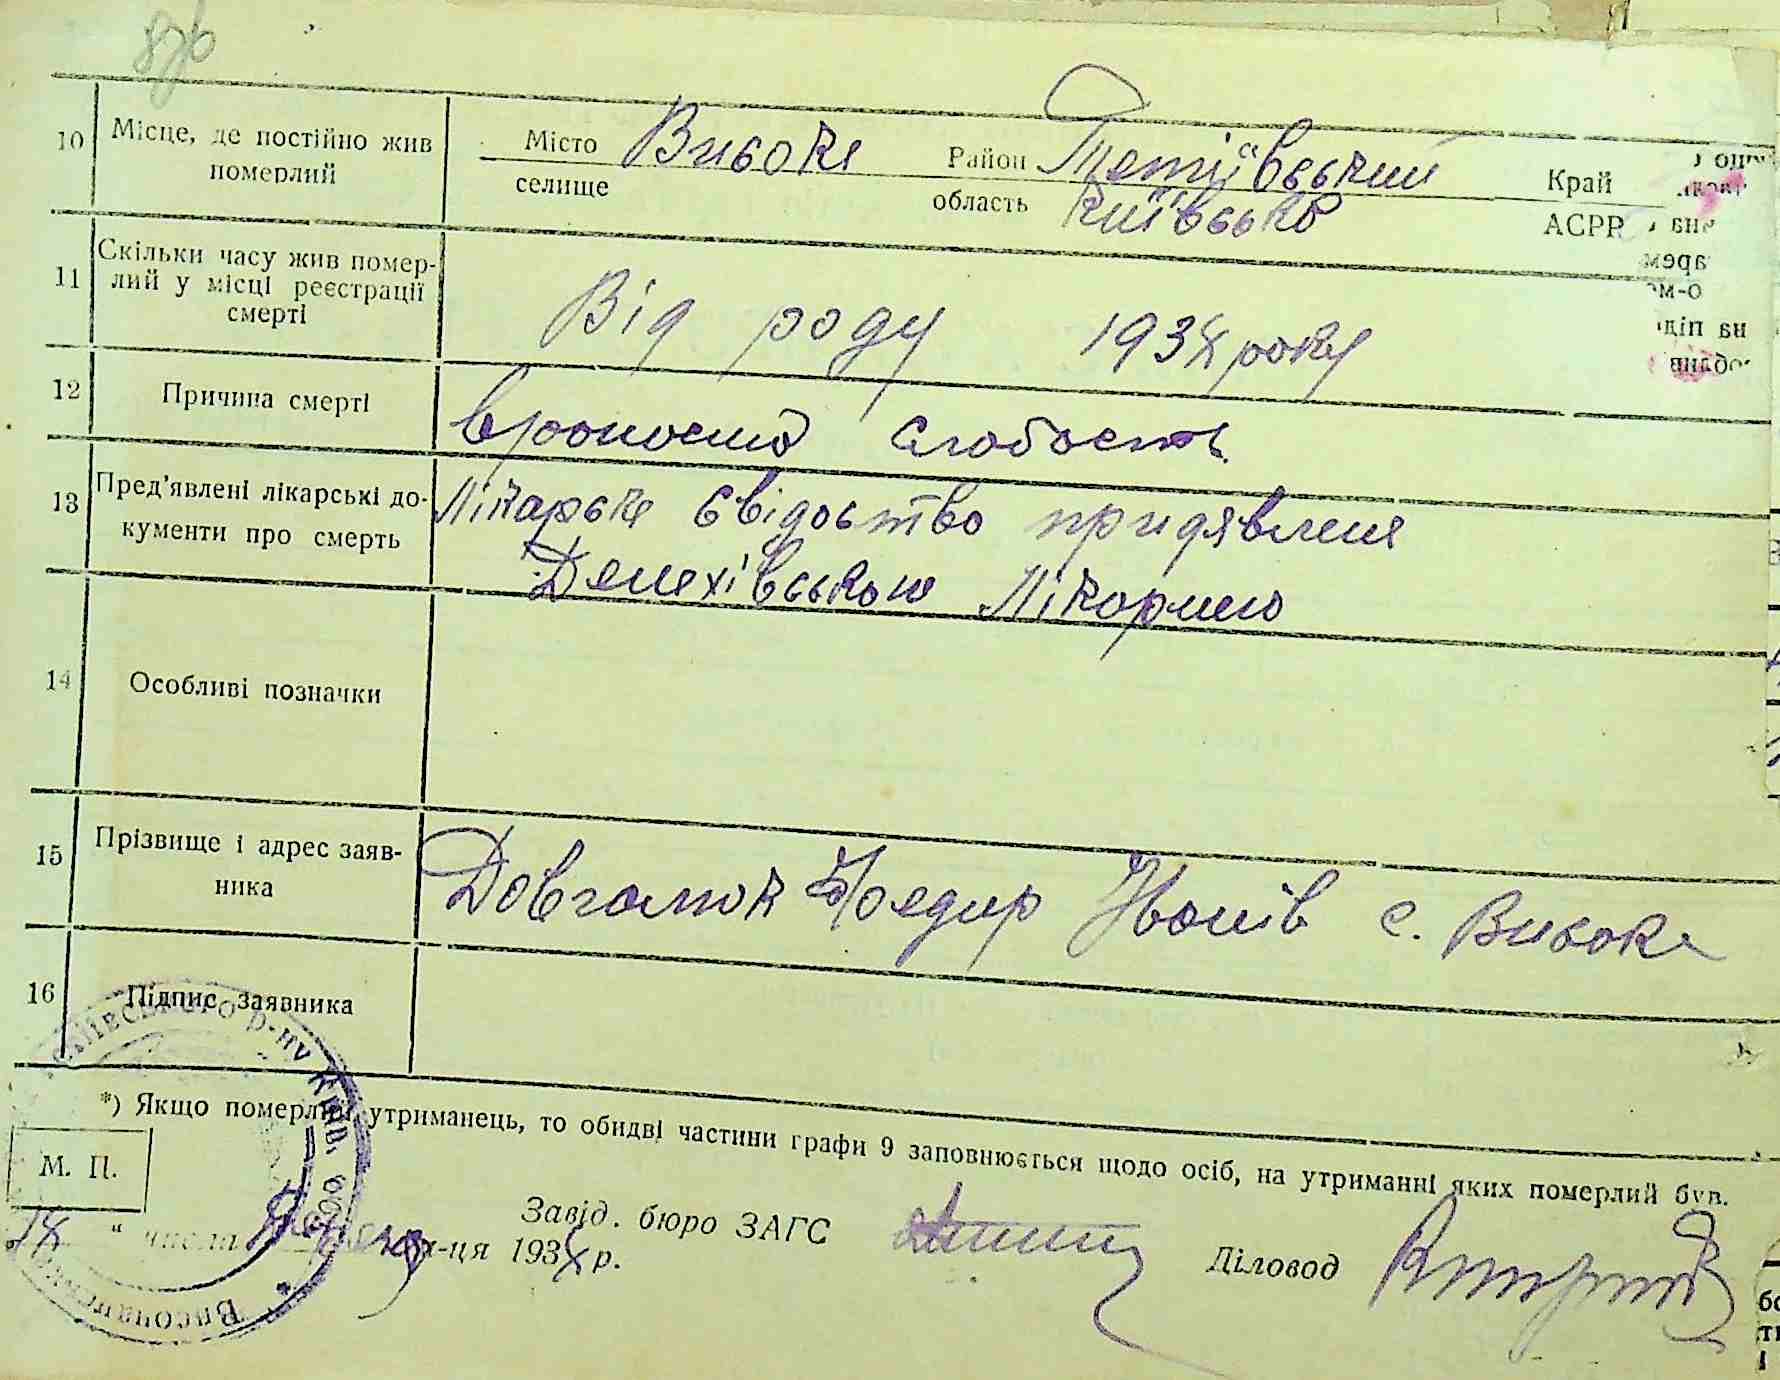 10 Місце, де постійно жив померлий
Місто Високе Район Тетіївський Край
селище область Київсько АСРР
11 Скільки часу жив помер-
лий у місці реєстрації
смерті
Від роду 1934 року
12 Причина смерті
врономъ слабость
13 Пред'явлені лікарські до-
кументи про смерть
Лікарске свідоство придявлене
Денехівською Лікарнею
14 Особливі позначки
15 Прізвище і адрес заяв-
ника
Довгалюк Фоедир Йванів с. Високе
16 Підпис заявника
*) Якщо померлий утриманець, то обидві частини графи 9 заповнюється щодо осіб, на утриманні яких померлий був.
М. П.
Завід. бюро ЗАГС
" числа м-ця 1934 р.
Діловод